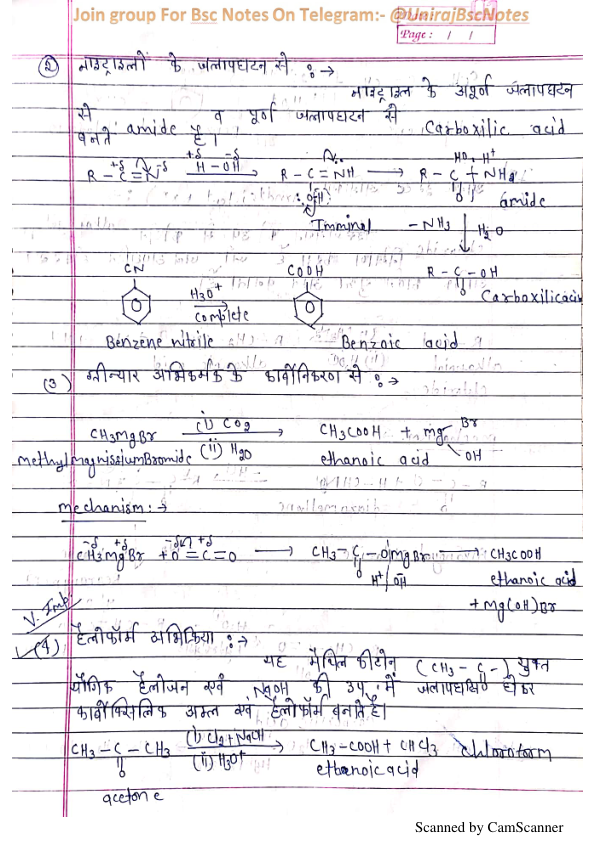 Join group For Bsc Notes On Telegram:- @UnirajBscNotes
Page: / /
(2) नाइट्राइलों के जलापघटन से :→
नाइट्राइल के अपूर्ण जलापघटन
से amide व पूर्ण जलापघटन से Carboxilic acid
बनते हैं।
R-C≡N H-OH → R-C=NH → R-C-NH2
amide
Imminol -NH3 ↓ H2O
R-C-OH
O
Carboxilicacid
CN COOH
H3O+
complete
Benzene nitrile Benzoic acid
(3) ग्रीन्यार अभिकर्मक के कार्बोनिकरण से :→
CH3MgBr (i) CO2 (ii) H2O → CH3COOH + mg Br OH
methylmagnissiumBromide ethanoic acid
mechanism:→
CH3MgBr + O=C=O → CH3-C-OMgBr → CH3COOH
O H+/OH ethanoic acid
+ Mg(OH)Br
V. Imp
(4) हैलोफॉर्म अभिक्रिया :→
यह मैथिल कीटोन (CH3-C-) युक्त
यौगिक हैलोजन एवं NaOH की उप. में जलापघटित होकर
कार्बोक्सिलिक अम्ल एवं हैलोफॉर्म बनाते है।
CH3-C-CH3 (i) Cl2+NaOH (ii) H3O+ → CH3-COOH + CHCl3 chloroform
O ethanoicacid
acetone
Scanned by CamScanner